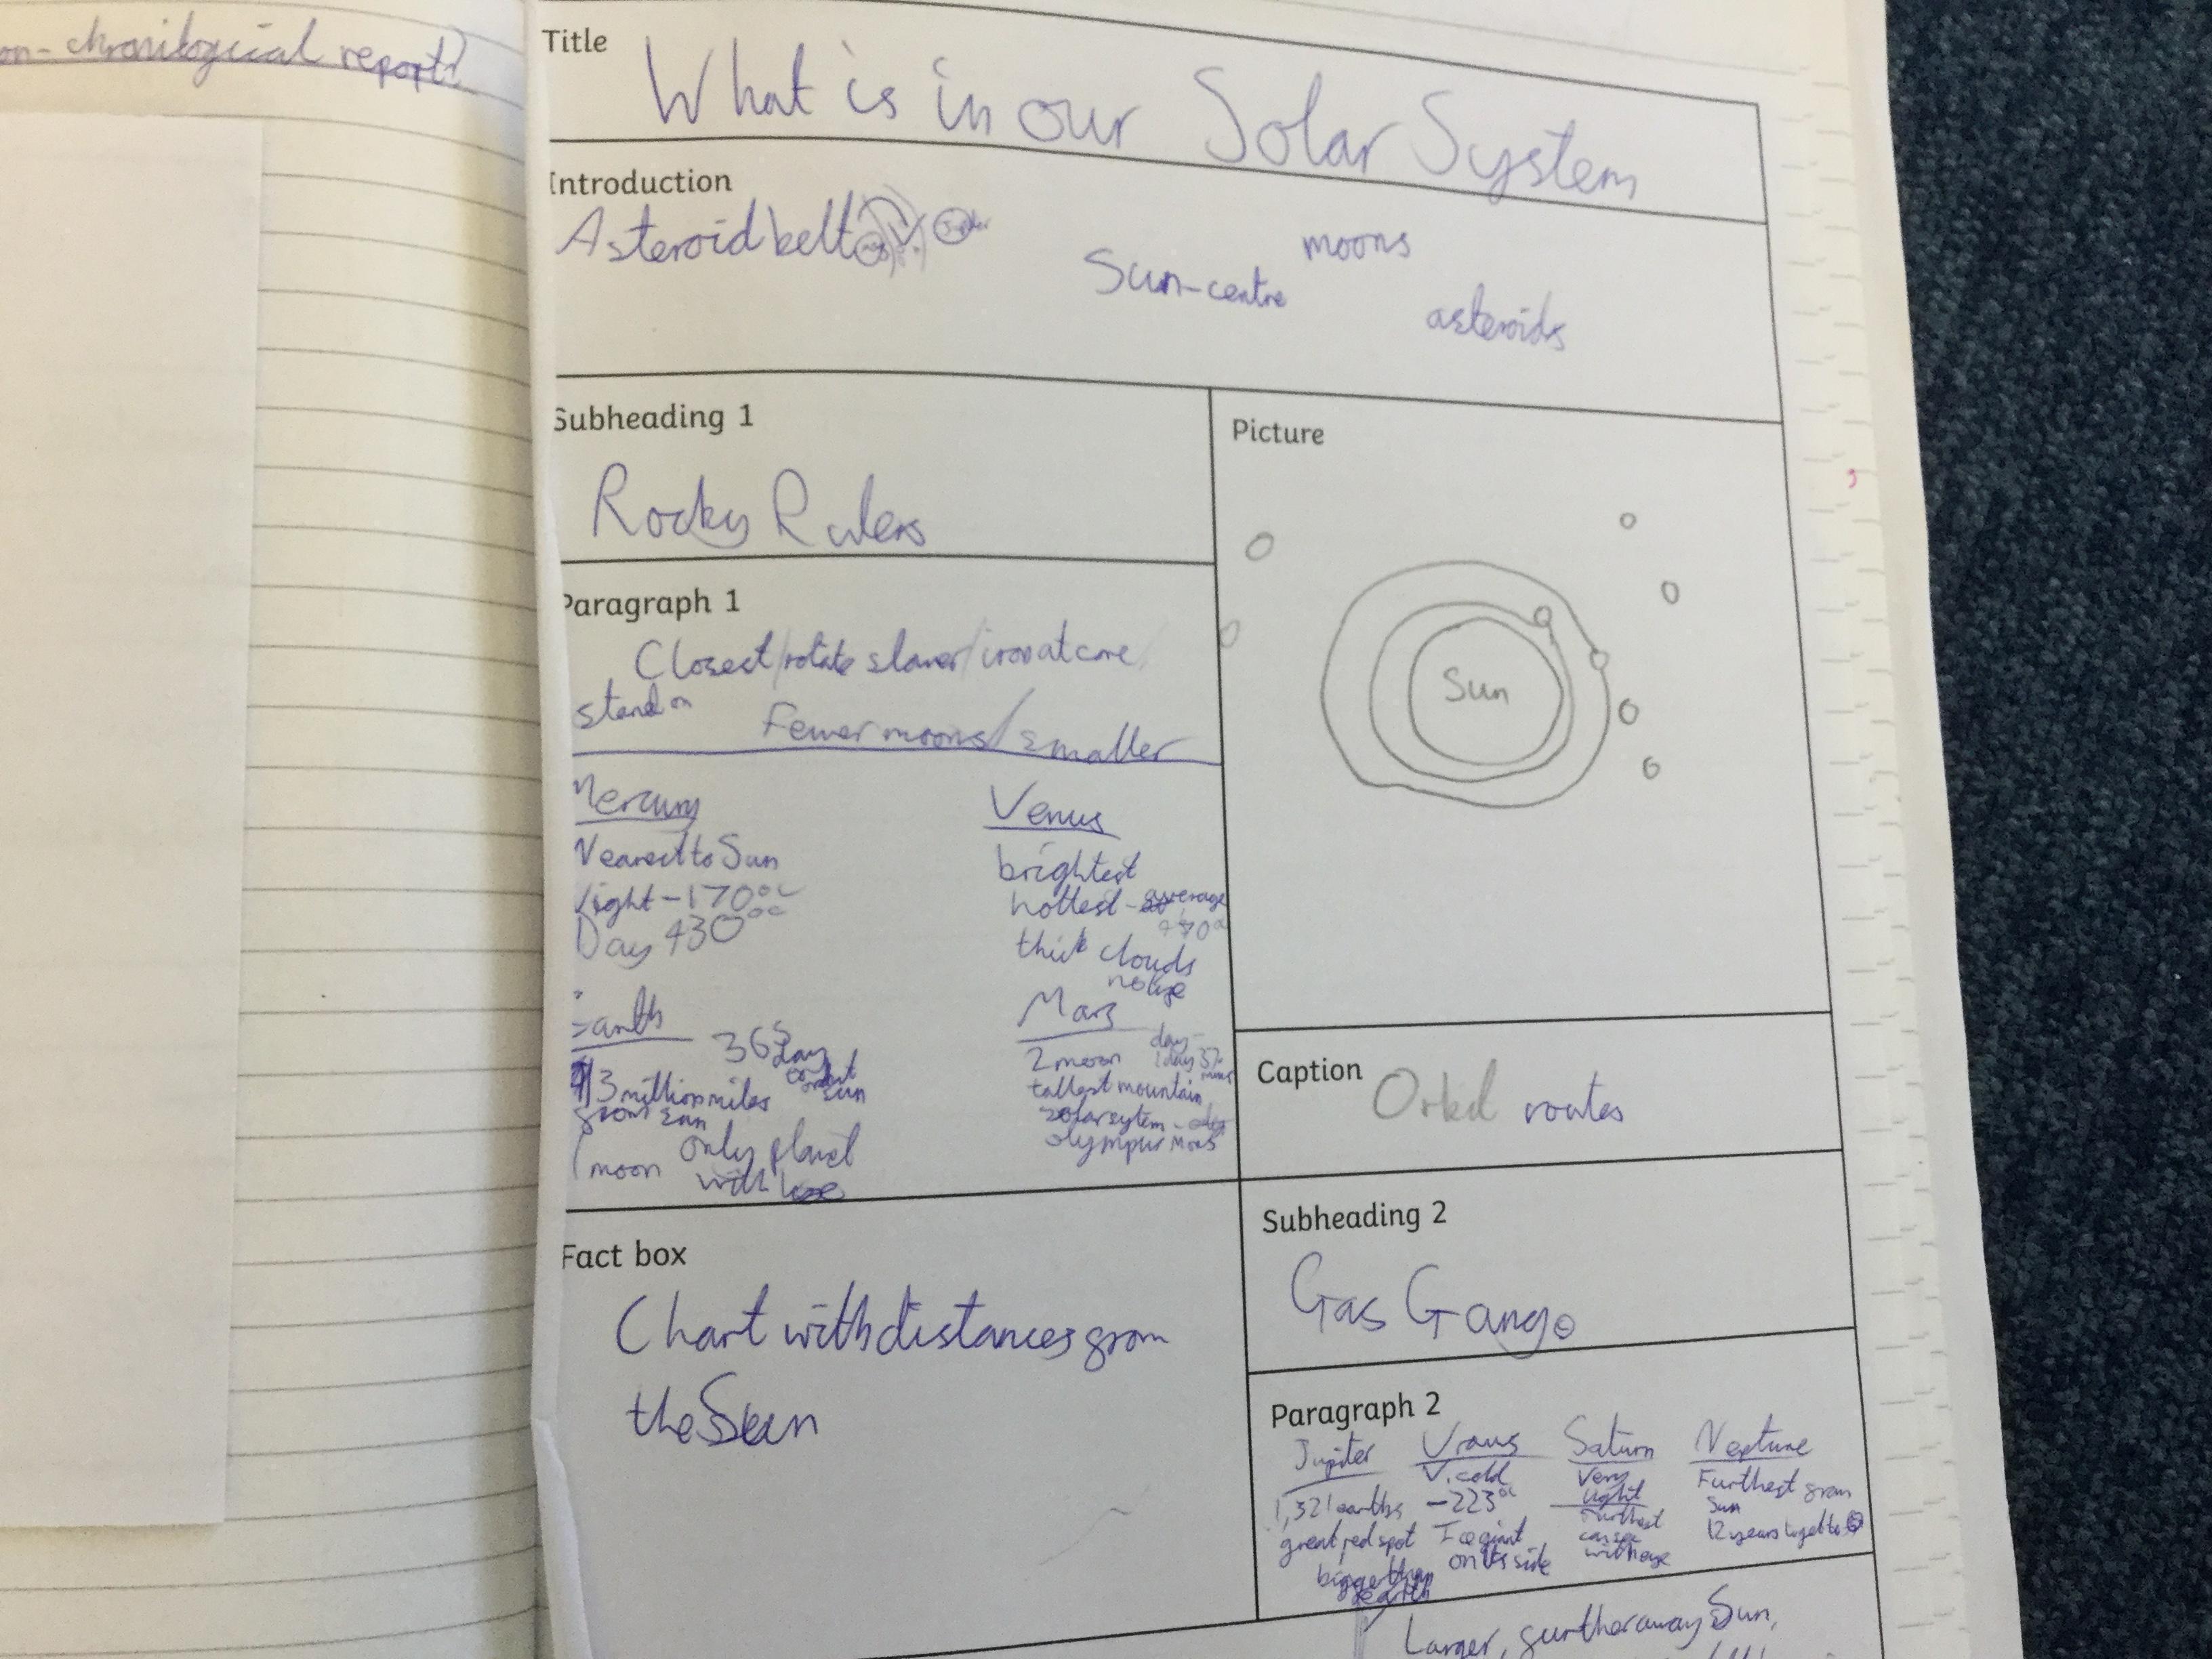 on-chronilogical report
Title
What is in our Solar System
Introduction
Asteroid belt
Sun-centre
moons
asteroids
Subheading 1
Rocky Rulers
Paragraph 1
Closest/rotate slower/iron at core/
stand on
Fewer moons/smaller
Mercury
Nearest to Sun
Night -170°C
Day 430°C
Venus
brightest
hottest - average
thick clouds
Earth
365 day
orbit
sun
93 million miles
from sun
1 moon
only planet
with
Mars
2 moon
day-
1 day 37
tallest mountain
solar sytem -
olympus Mons
Fact box
Chart with distances from
the Sun
Picture
Sun
Caption
Orbit routes
Subheading 2
Gas Gang
Paragraph 2
Jupiter
1,321 earths
great red spot
bigger than
earth
Uranus
V. cold
-223°C
Ice giant
on its side
Saturn
Very
light
furthest
can see
with eye
Neptune
Furthest from
Sun
12 years to get to
Larger, further away Sun,